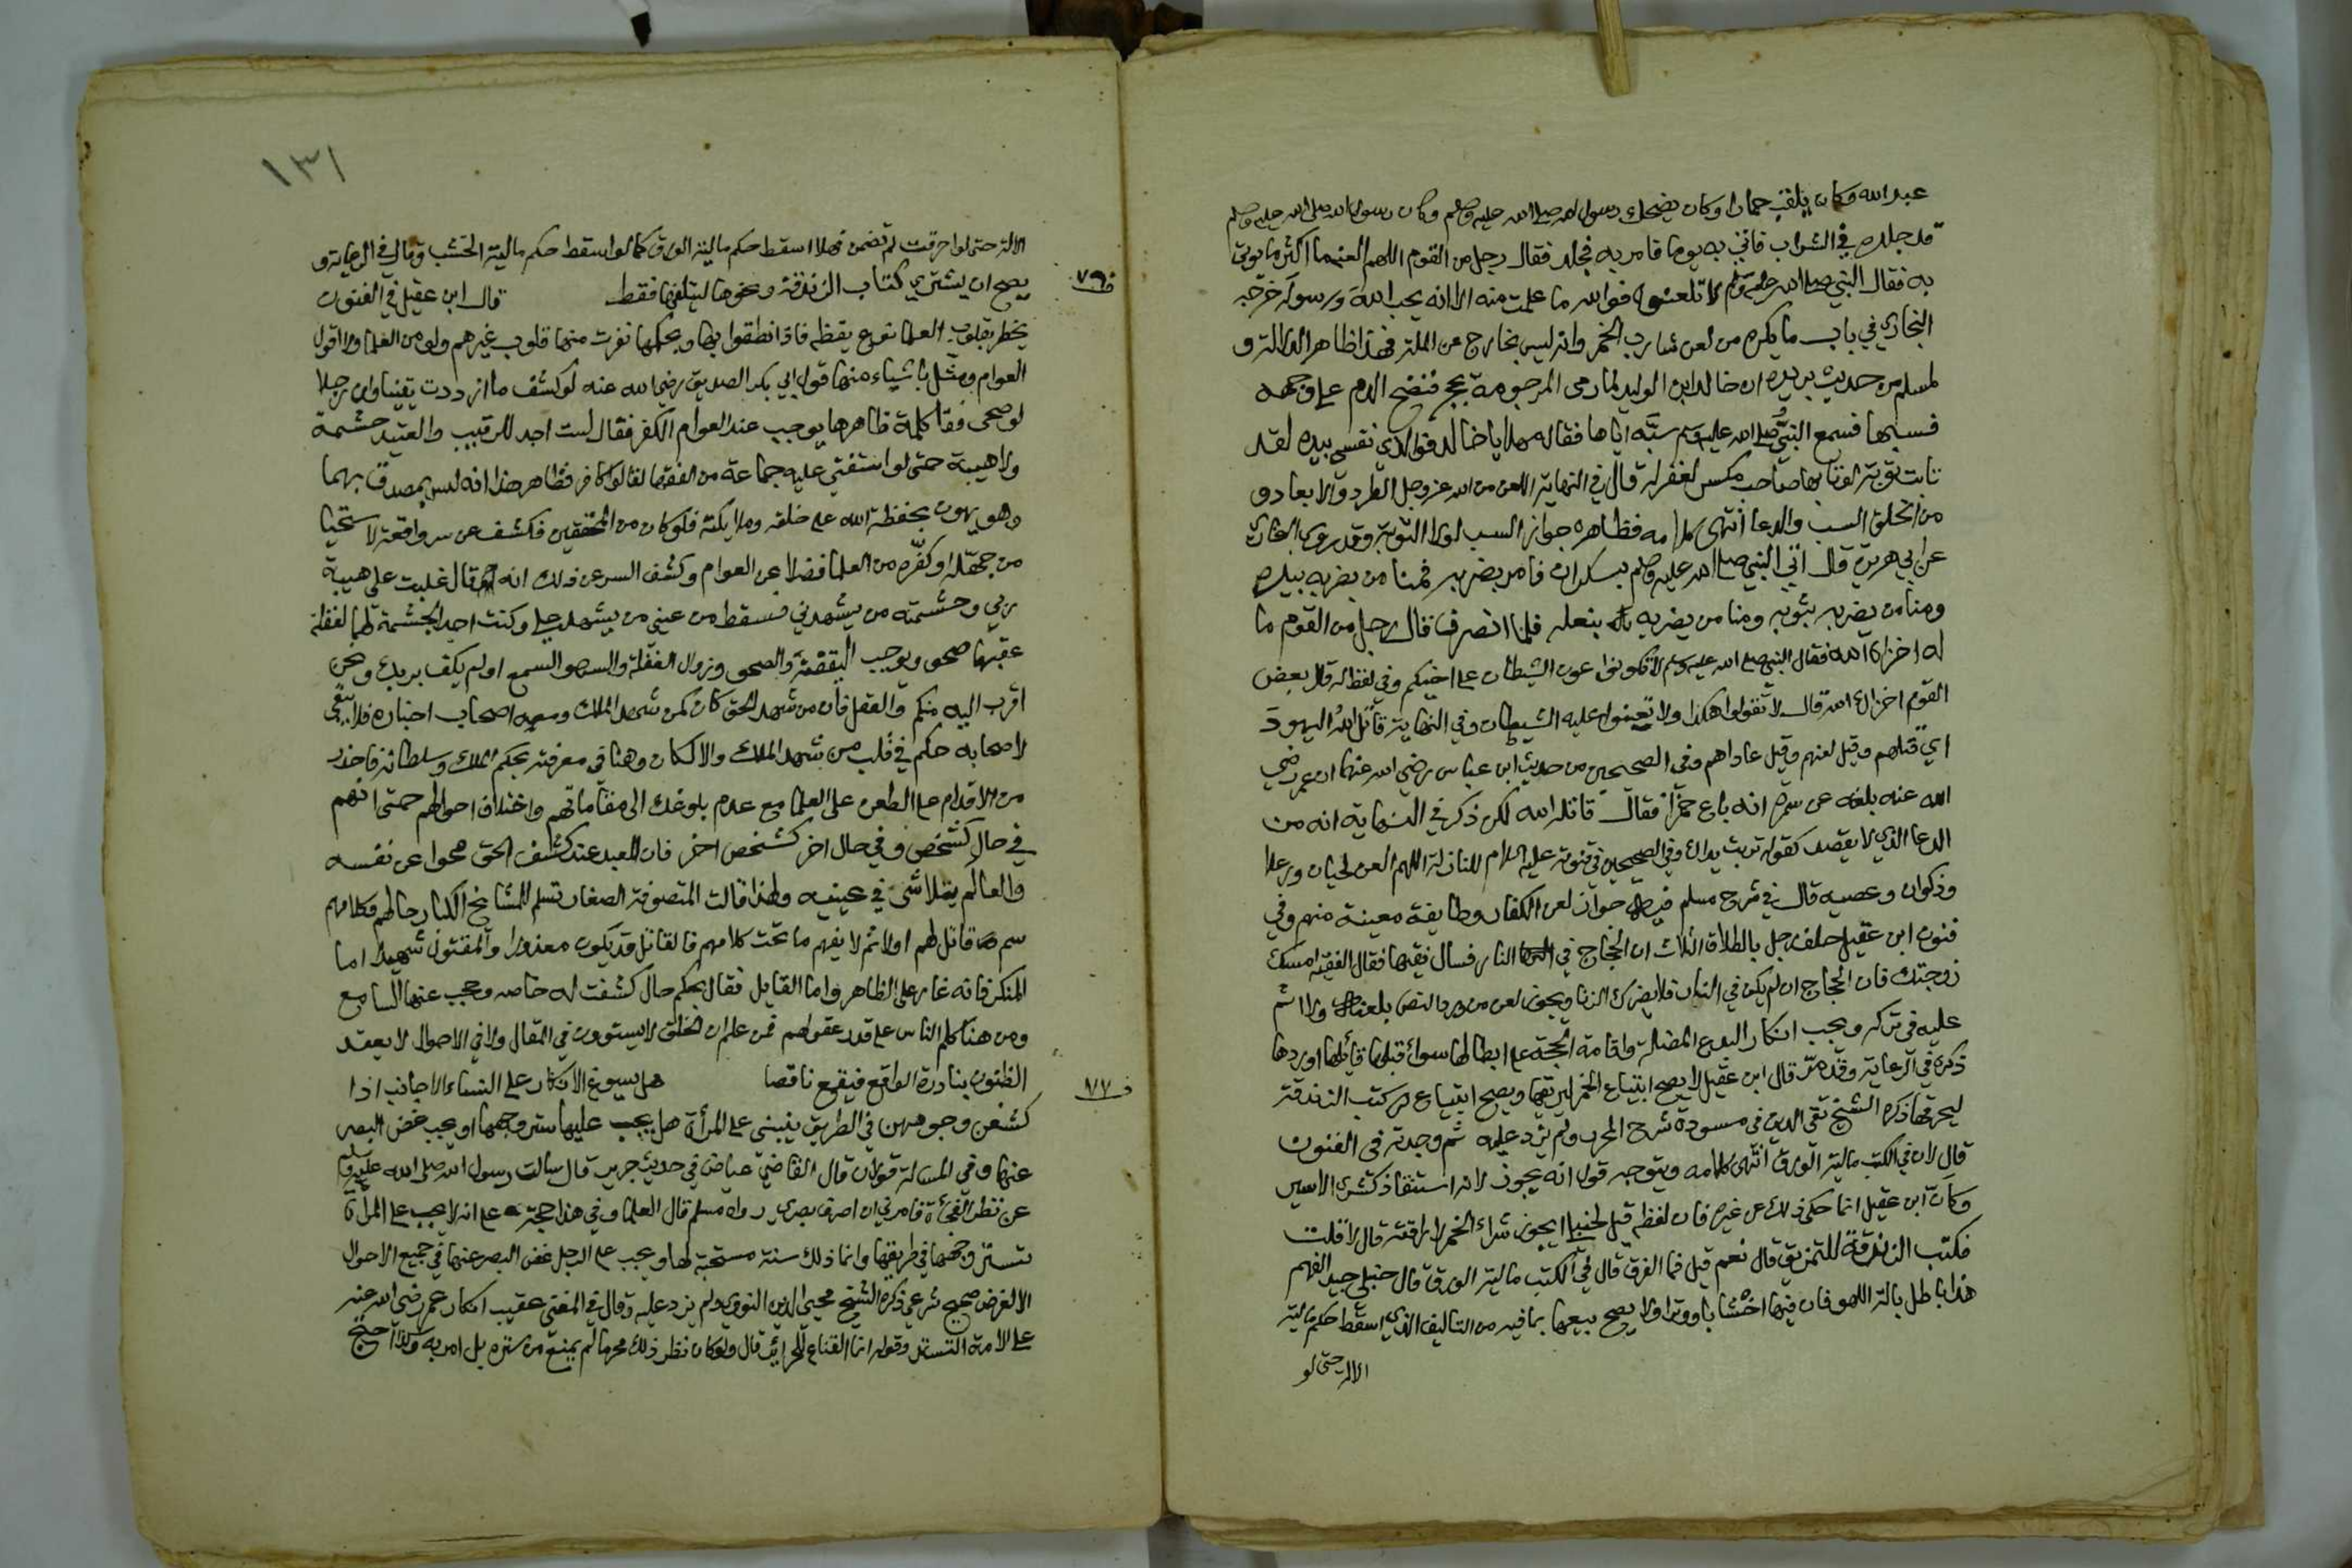 عبد الله وكان يلقب حمارا وكان يضحك رسول الله صلى الله عليه وسلم وكان رسول الله صلى الله عليه وسلم
قد جلده في الشراب فاتي به يوما فامر به فجلد فقال رجل من القوم اللهم العنه ما اكثر ما يوتى
به فقال النبي صلى الله عليه وسلم لا تلعنوه فوالله ما علمت منه الا انه يحب الله ورسوله خرجه
البخاري في باب ما يكره من لعن شارب الخمر وانه ليس بخارج من الملة فهذا ظاهر الدلالة و
لمسلم من حديث بريدة ان خالد ابن الوليد لما رمى المرجومة بحجر فنضح الدم على وجهه
فسبها فسمع النبي صلى الله عليه وسلم سبه اياها فقال له مهلا يا خالد فوالذي نفسي بيده لقد
تابت توبة لو تابها صاحب مكس لغفر له قال في النهاية اللعن من الله عز وجل الطرد والابعاد و
من الخلق السب والدعا انتهى كلامه فظاهره جواز السب لولا التوبة وقد روى البخاري
عن ابي هريرة قال اتي النبي صلى الله عليه وسلم بسكران فامر بضربه فمنا من يضربه بيده
ومنا من يضربه بثوبه ومنا من يضربه بنعله فلما انصرف قال رجل من القوم ما
له اخزاه الله فقال النبي صلى الله عليه وسلم لا تكونوا عون الشيطان على اخيكم وفي لفظ له قال بعض
القوم اخزاك الله قال لا تقولوا هكذا ولا تعينوا عليه الشيطان وفي النهاية قاتل الله اليهود
اي قتلهم وقيل لعنهم وقيل عاداهم وفي الصحيحين من حديث ابن عباس رضي الله عنهما ان عمر رضي
الله عنه بلغه عن سمرة انه باع خمرا فقال قاتله الله لكن ذكر في النهاية انه من
الدعا الذي لا يقصد كقوله تربت يداك وفي الصحيحين في قنوته عليه السلام للنازلة اللهم العن لحيان ورعلا
وذكوان وعصيه قال في شرح مسلم فيه جواز لعن الكفار وطايفة معينة منهم وفي
فنون ابن عقيل حلف رجل بالطلاق الثلاث ان الحجاج في النار فسال فقيها فقال الفقيه امسك
زوجتك فان الحجاج ان لم يكن في النار فلا يضرك الزنا ويجوز لعن من ورد النص بلعنه ولا اثم
عليه في تركه ويجب انكار البدع المضلة واقامة الحجة على ابطالها سواء قبلها قائلها او ردها
ذكره في الرعاية وقد مر قال ابن عقيل لا يصح ابتياع الخمر ليريقها ويصح ابتياع كتب الزندقة
ليحرقها ذكره الشيخ تقي الدين في مسودة شرح المحرر ولم يزد عليه ثم وجدته في الفنون
قال لان في الكتب مالية الورق انتهى كلامه ويتوجه قول انه يجوز لانه استنقاذ كشرى الاسير
وكان ابن عقيل انما حكى ذلك عن غيره فان لفظه قيل لحنبلي ايجوز شراء الخمر لاراقته قال لا قلت
فكتب الزندقة للتمزيق قال نعم قيل فما الفرق قال في الكتب مالية الورق قال حنبلي جيد الفهم
هذا باطل بالة اللهو فان فيها اخشابا ووترا ولا يصح بيعها بما فيه من التاليف الذي اسقط حكم مالية
الالة حتى لو
١٣١
الالة حتى لو احرقت لم تضمن فهلا اسقط حكم مالية الورق كما لو اسقط حكم مالية الخشب وقال في الرعاية و
يصح ان يشتري كتاب الزندقة ونحوها ليتلفها فقط قال ابن عقيل في الفنون
ف٧٦
يخطر بقلوب العلما نوع يقظه فاذا نطقوا بها وبحكمها نفرت منها قلوب غيرهم ولو من العلما ولا اقول
العوام ومثل باشياء منها قول ابي بكر الصديق رضي الله عنه لو كشف ما ازددت يقينا وان رجلا
لو صحى فقال كلمة ظاهرها يوجب عند العوام الكفر فقال لست اجد للرقيب والعتيد حشمة
ولا هيبة حتى لو استفتي عليه جماعة من الفقها لقالوا كافر فظاهر هذا انه ليس بمصدق بهما
وهو يهون بحفظة الله على خلقه وملايكته فلو كان من المحققين فكشف عن سر واقعته لاستحيا
من جهله او كفره من العلما فضلا عن العوام وكشف السر عن ذلك انه قال غلبت علي هيبة
ربي وحشمة من يشهدني فسقط من عيني من يشهد علي وكنت اجد الحشمة لهما لغفلة
عقبها صحو ويوجب اليقظة والصحو وزوال الغفلة والسهو السمع اولم يكف بربك ونحن
اقرب اليه منكم والعقل فان من شهد الحق كان كمن شهد الملك ومعه اصحاب اخباره فلا يبقى
لاصحابه حكم في قلب من شهد الملك والا لكان وهنا في معرفته بحكم الملك وسلطانه فاحذر
من الاقدام على الطعن على العلما مع عدم بلوغك الى مقاماتهم واختلاف احوالهم حتى انهم
في حال كشخص وفي حال اخر كشخص اخر فان العبد عند كشف الحق محو عن نفسه
والعالم يتلاشى في عينه ولهذا قالت المتصوفة الصغار تسلم للمشايخ الكبار حالهم فكلامهم
سم قاتل لهم اولا ثم لا يفهم ما تحت كلامهم فالقاتل قد يكون معذورا والمقتول شهيدا اما
المنكر فانه غار على الظاهر واما القايل فقال بحكم حال كشفت له خاصه وحجب عنها السامع
ومن هنا كلم الناس على قدر عقولهم فمن علم ان الخلق لا يستوون في المقال ولا في الاحوال لا يعقد
الظنون بنادرة الواقع فيقع ناقصا هل يسوغ الانكار على النساء الاجانب اذا
ف٧٧
كشفن وجوههن في الطريق ينبني على المرأة هل يجب عليها ستر وجهها او يجب غض البصر
عنها وفي المسالة قولان قال القاضي عياض في حديث جرير قال سالت رسول الله صلى الله عليه وسلم
عن نظر الفجأة فامرني ان اصرف بصري رواه مسلم قال العلما وفي هذا حجة على انه لا يجب على المرأة
تستر وجهها في طريقها وانما ذلك سنة مستحبة لها ويجب على الرجل غض البصر عنها في جميع الاحوال
الا لغرض صحيح شرعي ذكره الشيخ محيي الدين النووي ولم يزد عليه وقال في المغني عقيب انكار عمر رضي الله عنه
على الامة التستر وقوله انما القناع للحراير قال ولو كان نظر ذلك محرما لم يمنع من ستره بل امر به وكذا احتج